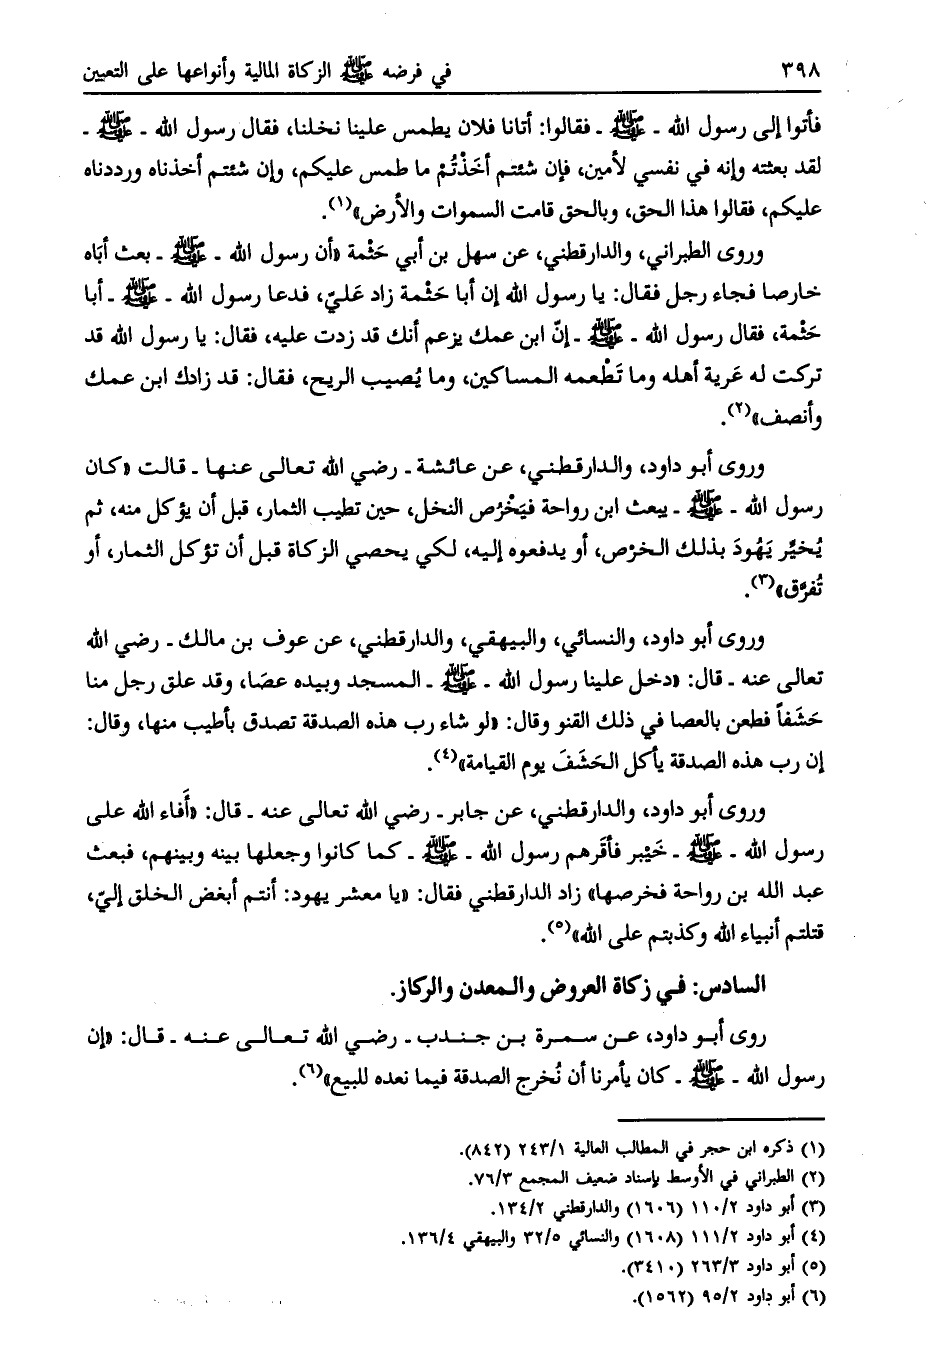 ٣٩٨ في فرضه ﷺ الزكاة المالية وأنواعها على التعيين
فأتوا إلى رسول الله ـ ﷺ ـ فقالوا: أتانا فلان يطمس علينا نخلنا، فقال رسول الله ـ ﷺ ـ
لقد بعثته وإنه في نفسي لأمين، فإن شئتم أخَذْتُمْ ما طمس عليكم، وإن شئتم أخذناه ورددناه
عليكم، فقالوا هذا الحق، وبالحق قامت السموات والأرض»(١).
وروى الطبراني، والدارقطني، عن سهل بن أبي حَثْمة «أن رسول الله ـ ﷺ ـ بعث أبَاه
خارصا فجاء رجل فقال: يا رسول الله إن أبا حَثْمة زاد عَليّ، فدعا رسول الله ـ ﷺ ـ أبا
حَثْمة، فقال رسول الله ـ ﷺ ـ إنّ ابن عمك يزعم أنك قد زدت عليه، فقال: يا رسول الله قد
تركت له عَرية أهله وما تَطْعمه المساكين، وما يُصيب الريح، فقال: قد زادك ابن عمك
وأنصف»(٢).
وروى أبو داود، والدارقطني، عن عائشة ـ رضي الله تعالى عنها ـ قالت «كان
رسول الله ـ ﷺ ـ يبعث ابن رواحة فيَخْرُص النخل، حين تطيب الثمار، قبل أن يؤكل منه، ثم
يُخيَّر يَهُودَ بذلك الخرْص، أو يدفعوه إليه، لكي يحصي الزكاة قبل أن تؤكل الثمار، أو
تُفرَّق»(٣).
وروى أبو داود، والنسائي، والبيهقي، والدارقطني، عن عوف بن مالك ـ رضي الله
تعالى عنه ـ قال: «دخل علينا رسول الله ـ ﷺ ـ المسجد وبيده عصَا، وقد علق رجل منا
حَشَفاً فطعن بالعصا في ذلك القنو وقال: «لو شاء رب هذه الصدقة تصدق بأطيب منها، وقال:
إن رب هذه الصدقة يأكل الحَشَفَ يوم القيامة»(٤).
وروى أبو داود، والدارقطني، عن جابر ـ رضي الله تعالى عنه ـ قال: «أَفاء الله على
رسول الله ـ ﷺ ـ خَيْبر فأقَرهم رسول الله ـ ﷺ ـ كما كانوا وجعلها بينه وبينهم، فبعث
عبد الله بن رواحة فخرصها» زاد الدارقطني فقال: «يا معشر يهود: أنتم أبغض الخلق إليّ،
قتلتم أنبياء الله وكذبتم على الله»(٥).
السادس: في زكاة العروض والمعدن والركاز.
روى أبو داود، عن سمرة بن جندب ـ رضي الله تعالى عنه ـ قال: «إن
رسول الله ـ ﷺ ـ كان يأمرنا أن نُخرج الصدقة فيما نعده للبيع»(٦).
(١) ذكره ابن حجر في المطالب العالية ٢٤٣/١ (٨٤٢).
(٢) الطبراني في الأوسط بإسناد ضعيف المجمع ٧٦/٣.
(٣) أبو داود ١١٠/٢ (١٦٠٦) والدارقطني ١٣٤/٢.
(٤) أبو داود ١١١/٢ (١٦٠٨) والنسائي ٣٢/٥ والبيهقي ١٣٦/٤.
(٥) أبو داود ٢٦٣/٣ (٣٤١٠).
(٦) أبو داود ٩٥/٢ (١٥٦٢).